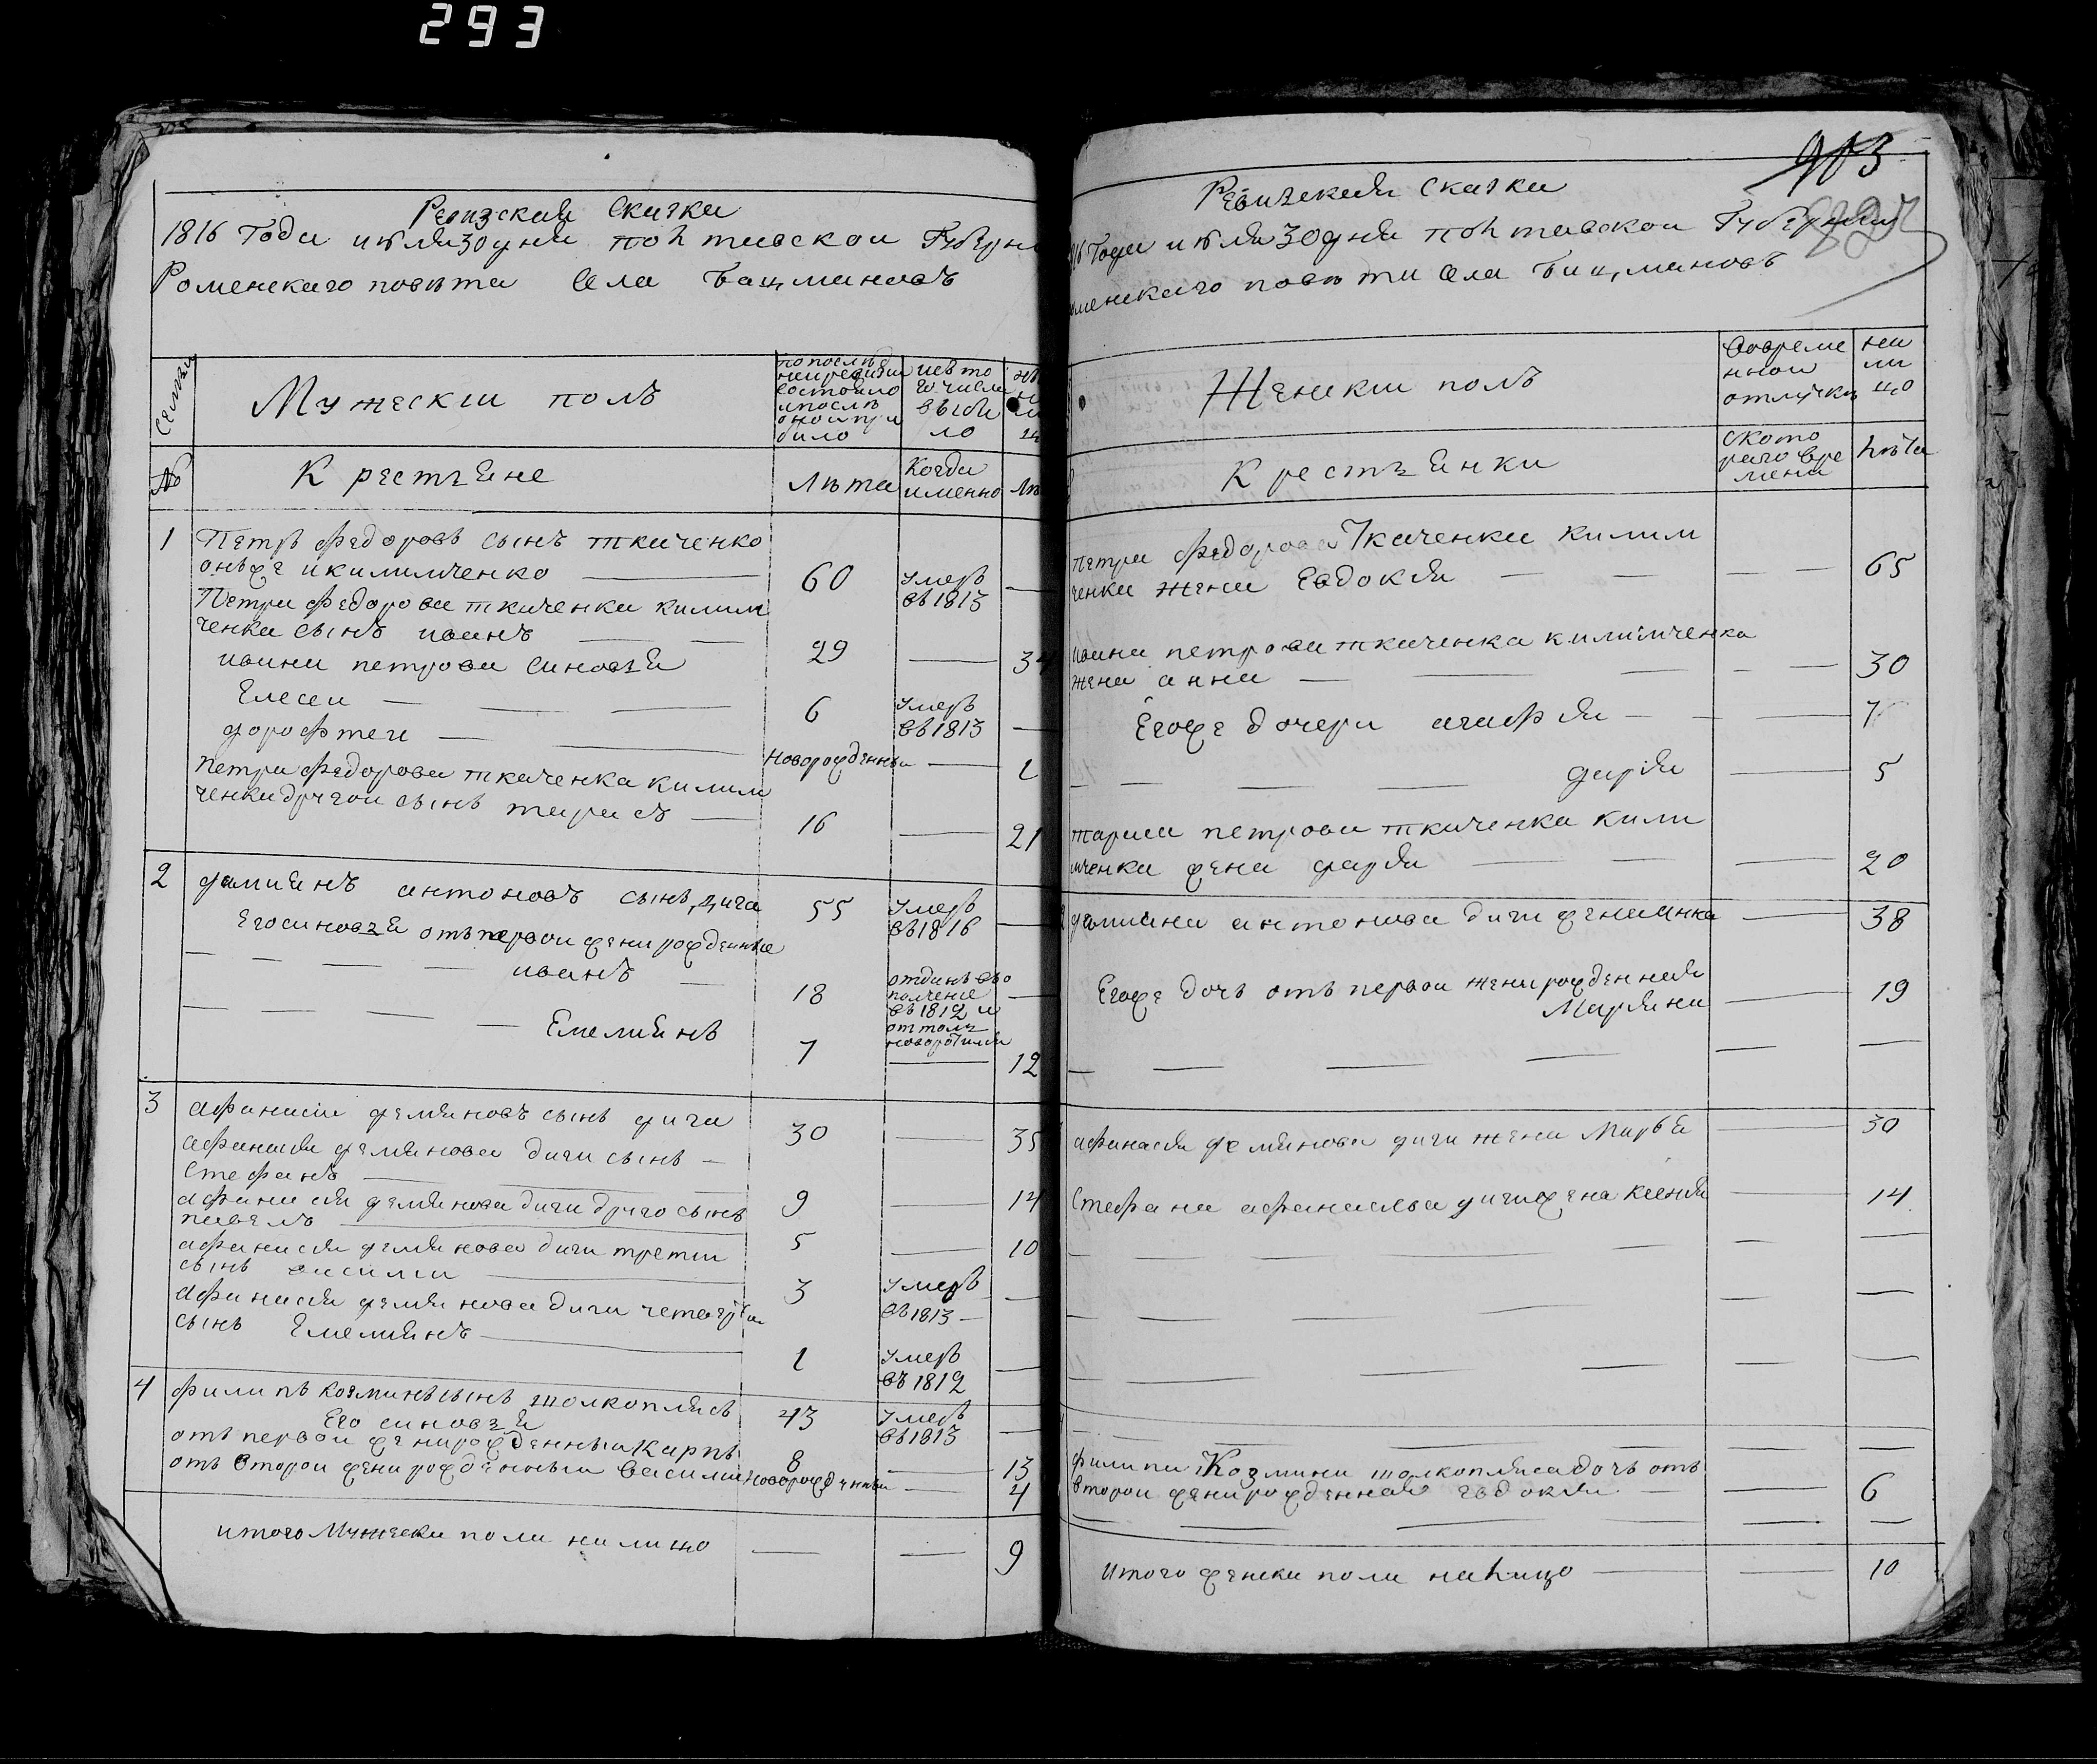 293
Ревизская Скаска
1816 Года июля 30 дня полтавской Губерни
Роменскаго повѣта Села Бацмановъ
Семьи
Мужеский полъ
по послѣд
ней ревизии
состояло
и послѣ
оной при
было
изъ то
го числа
выбы
ло
№
Крестьяне
Лѣта
Когда
именно
Лѣ
1
Петръ федоровъ сынъ ткаченко
онъже и килимченко
60
умеръ
въ 1813
Петра федорова ткаченка килим
ченка сынъ иванъ
29
34
ивана петрова синовья
Елесей
6
умеръ
въ 1813
дорофтей
новорожденны
1
Петра федорова ткаченка килим
ченка другой сынъ тарасъ
16
21
2
дамианъ антоновъ сынъ дига
55
умеръ
въ 1816
Его синовья отъ первой жени рожденние
иванъ
18
отданъ въ о
полчение
въ 1812 и
оттоль
Емелианъ
7
12
3
афанасий демяновъ сынъ дига
30
35
афанасия демянова диги сынъ
Стефанъ
9
14
афанасия демянова диги друго сынъ
павелъ
5
10
афанасия демянова диги трети
сынъ василий
3
умеръ
въ 1813
афанасия демянова диги четверти
сынъ Емелианъ
1
умеръ
въ 1812
4
филипъ козминъ сынъ шолкоплясъ
43
умеръ
въ 1813
Его синовья
отъ первой жени рожденны карпъ
8
13
отъ второй жени рожденны василий
новорожденны
4
итого Мужеска пола налицо
9
903
Ревизская Скаска
816 Года июля 30 дня полтавской Губернии
оменскаго повѣта Села Бацмановъ
Женски полъ
Вовреме
нной
отлучки
на
ли
цо
Крестьянки
Ското
раго вре
мени
лѣта
петра федорова Ткаченка килим
ченка жена Евдокия
65
ивана петрова ткаченка килимченка
жена анна
30
Егоже дочери агафия
7
дария
5
тараса петрова ткаченка кили
мченка жена дария
20
дамиана антонова диги жена анна
38
Егоже дочь отъ первой жени рожденная
Марина
19
афанасия демянова диги жена Марья
30
Стефана афанасиева диги жена ксения
14
филипа Козмина шолкопляса дочь отъ
второй жени рожденная евдокия
6
итого женска пола налицо
10